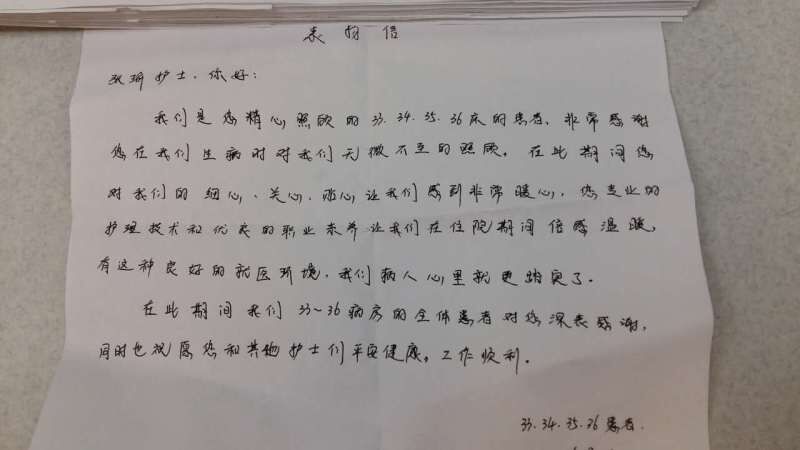 表扬信
护士,你好:
我们是您精心照顾的33.34.35.36床的患者,非常感谢
您在我们生病时对我们无微不至的照顾。在此期间您
对我们的细心、关心、耐心,让我们感到非常暖心,您专业的
护理技术和优良的职业素养让我们在住院期间倍感温暖,
有这种良好的就医环境,我们病人心里就更踏实了。
在此期间我们33~36病房的全体患者对您深表感谢,
同时也祝愿您和其他护士们平安健康。工作顺利。
33.34.35.36患者.